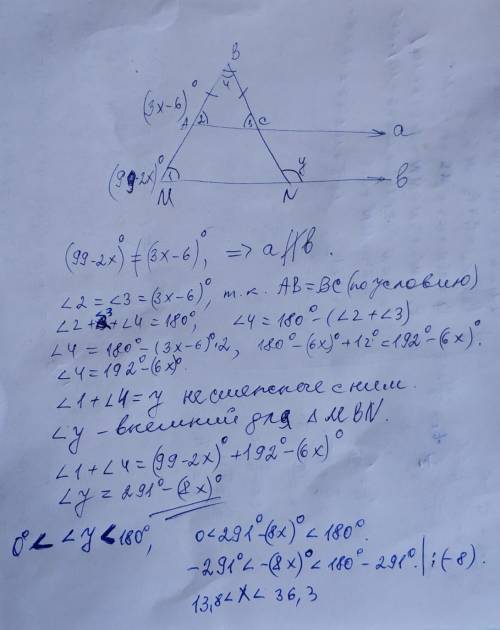 B
4
(3x-6)°
A 2 3 C a
(99-2x)° 1 y b
M N
(99-2x)° ≠ (3x-6)°, => a ∦ b.
∠2 = ∠3 = (3x-6)°, т.к. AB = BC (по условию)
∠2 + ∠3 + ∠4 = 180°, ∠4 = 180° - (∠2 + ∠3)
∠4 = 180° - (3x-6)°·2, 180° - (6x)° + 12° = 192° - (6x)°.
∠4 = 192° - (6x)°.
∠1 + ∠4 = y несмежное с ним.
∠y - внешний для △ MBN.
∠1 + ∠4 = (99-2x)° + 192° - (6x)°
∠y = 291° - (8x)°
0° < ∠y < 180°, 0 < 291° - (8x)° < 180°.
-291° < -(8x)° < 180° - 291°. | : (-8).
13,8 < x < 36,3